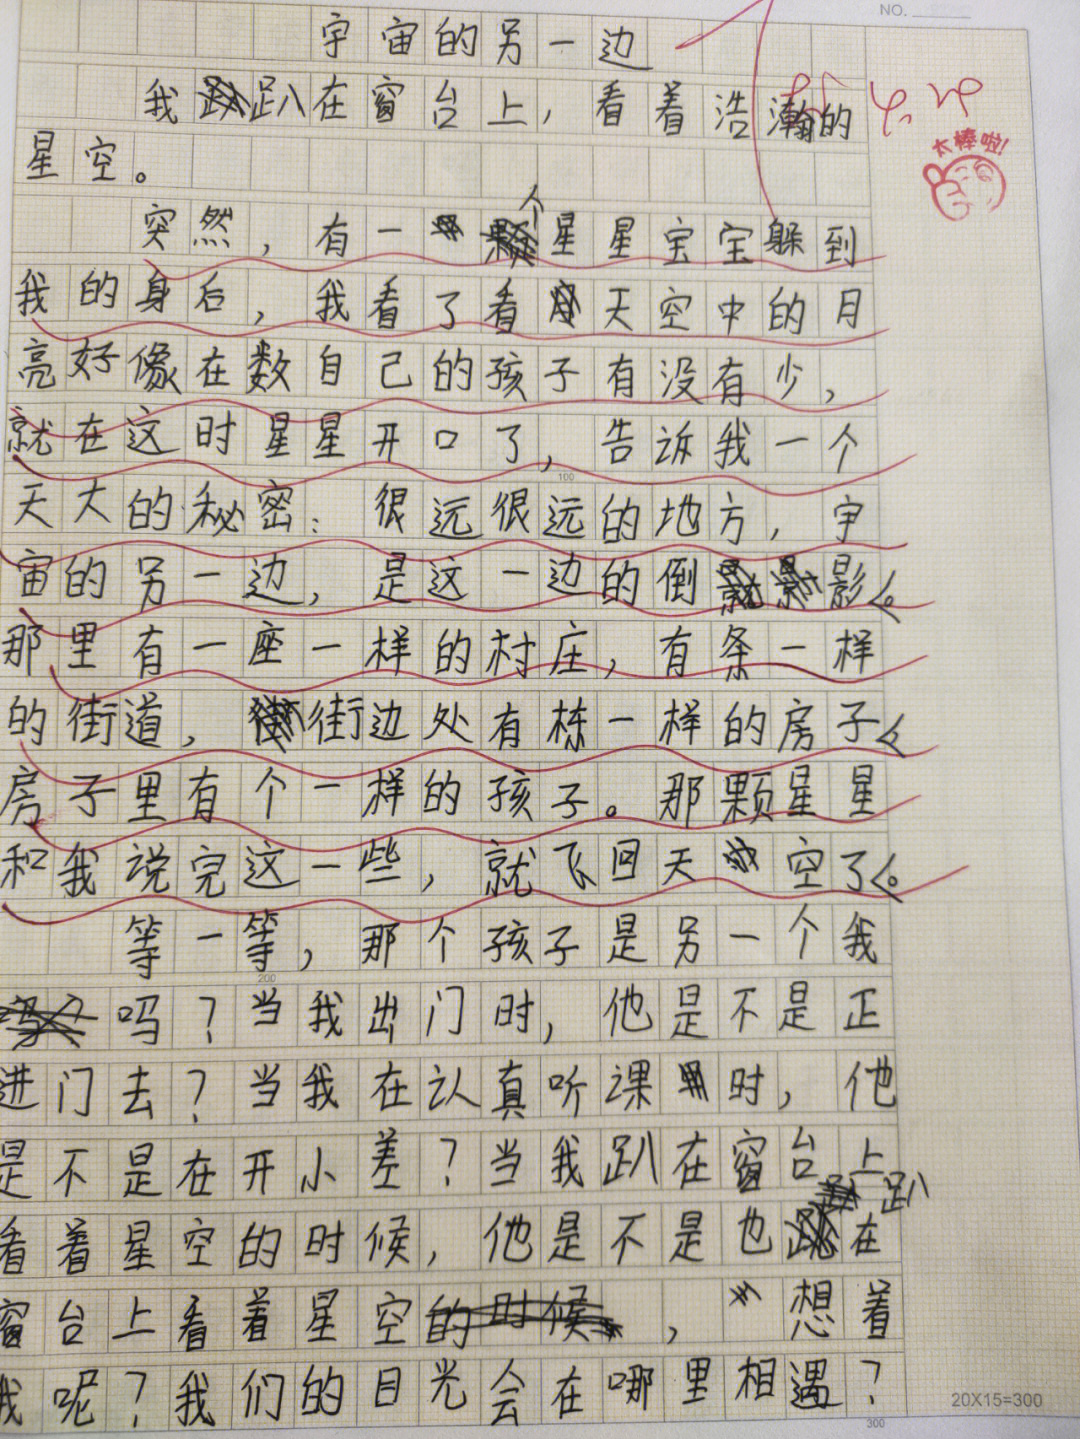 NO.
宇宙的另一边
我趴在窗台上，看着浩瀚的
太棒啦!
星空。
突然，有一个星星宝宝躲到
我的身后，我看了看天空中的月
亮好像在数自己的孩子有没有少，
就在这时星星开口了，告诉我一个
100
天大的秘密：很远很远的地方，宇
宙的另一边，是这一边的倒影。
那里有一座一样的村庄，有条一样
的街道，街边处有栋一样的房子
房子里有个一样的孩子。那颗星星
和我说完这一些，就飞回天空了。
等一等，那个孩子是另一个我
200
吗？当我出门时，他是不是正
进门去？当我在认真听课时，他
是不是在开小差？当我趴在窗台上
看着星空的时候，他是不是也趴在
窗台上看着星空，想着
我呢？我们的目光会在哪里相遇？
20X15=300
300